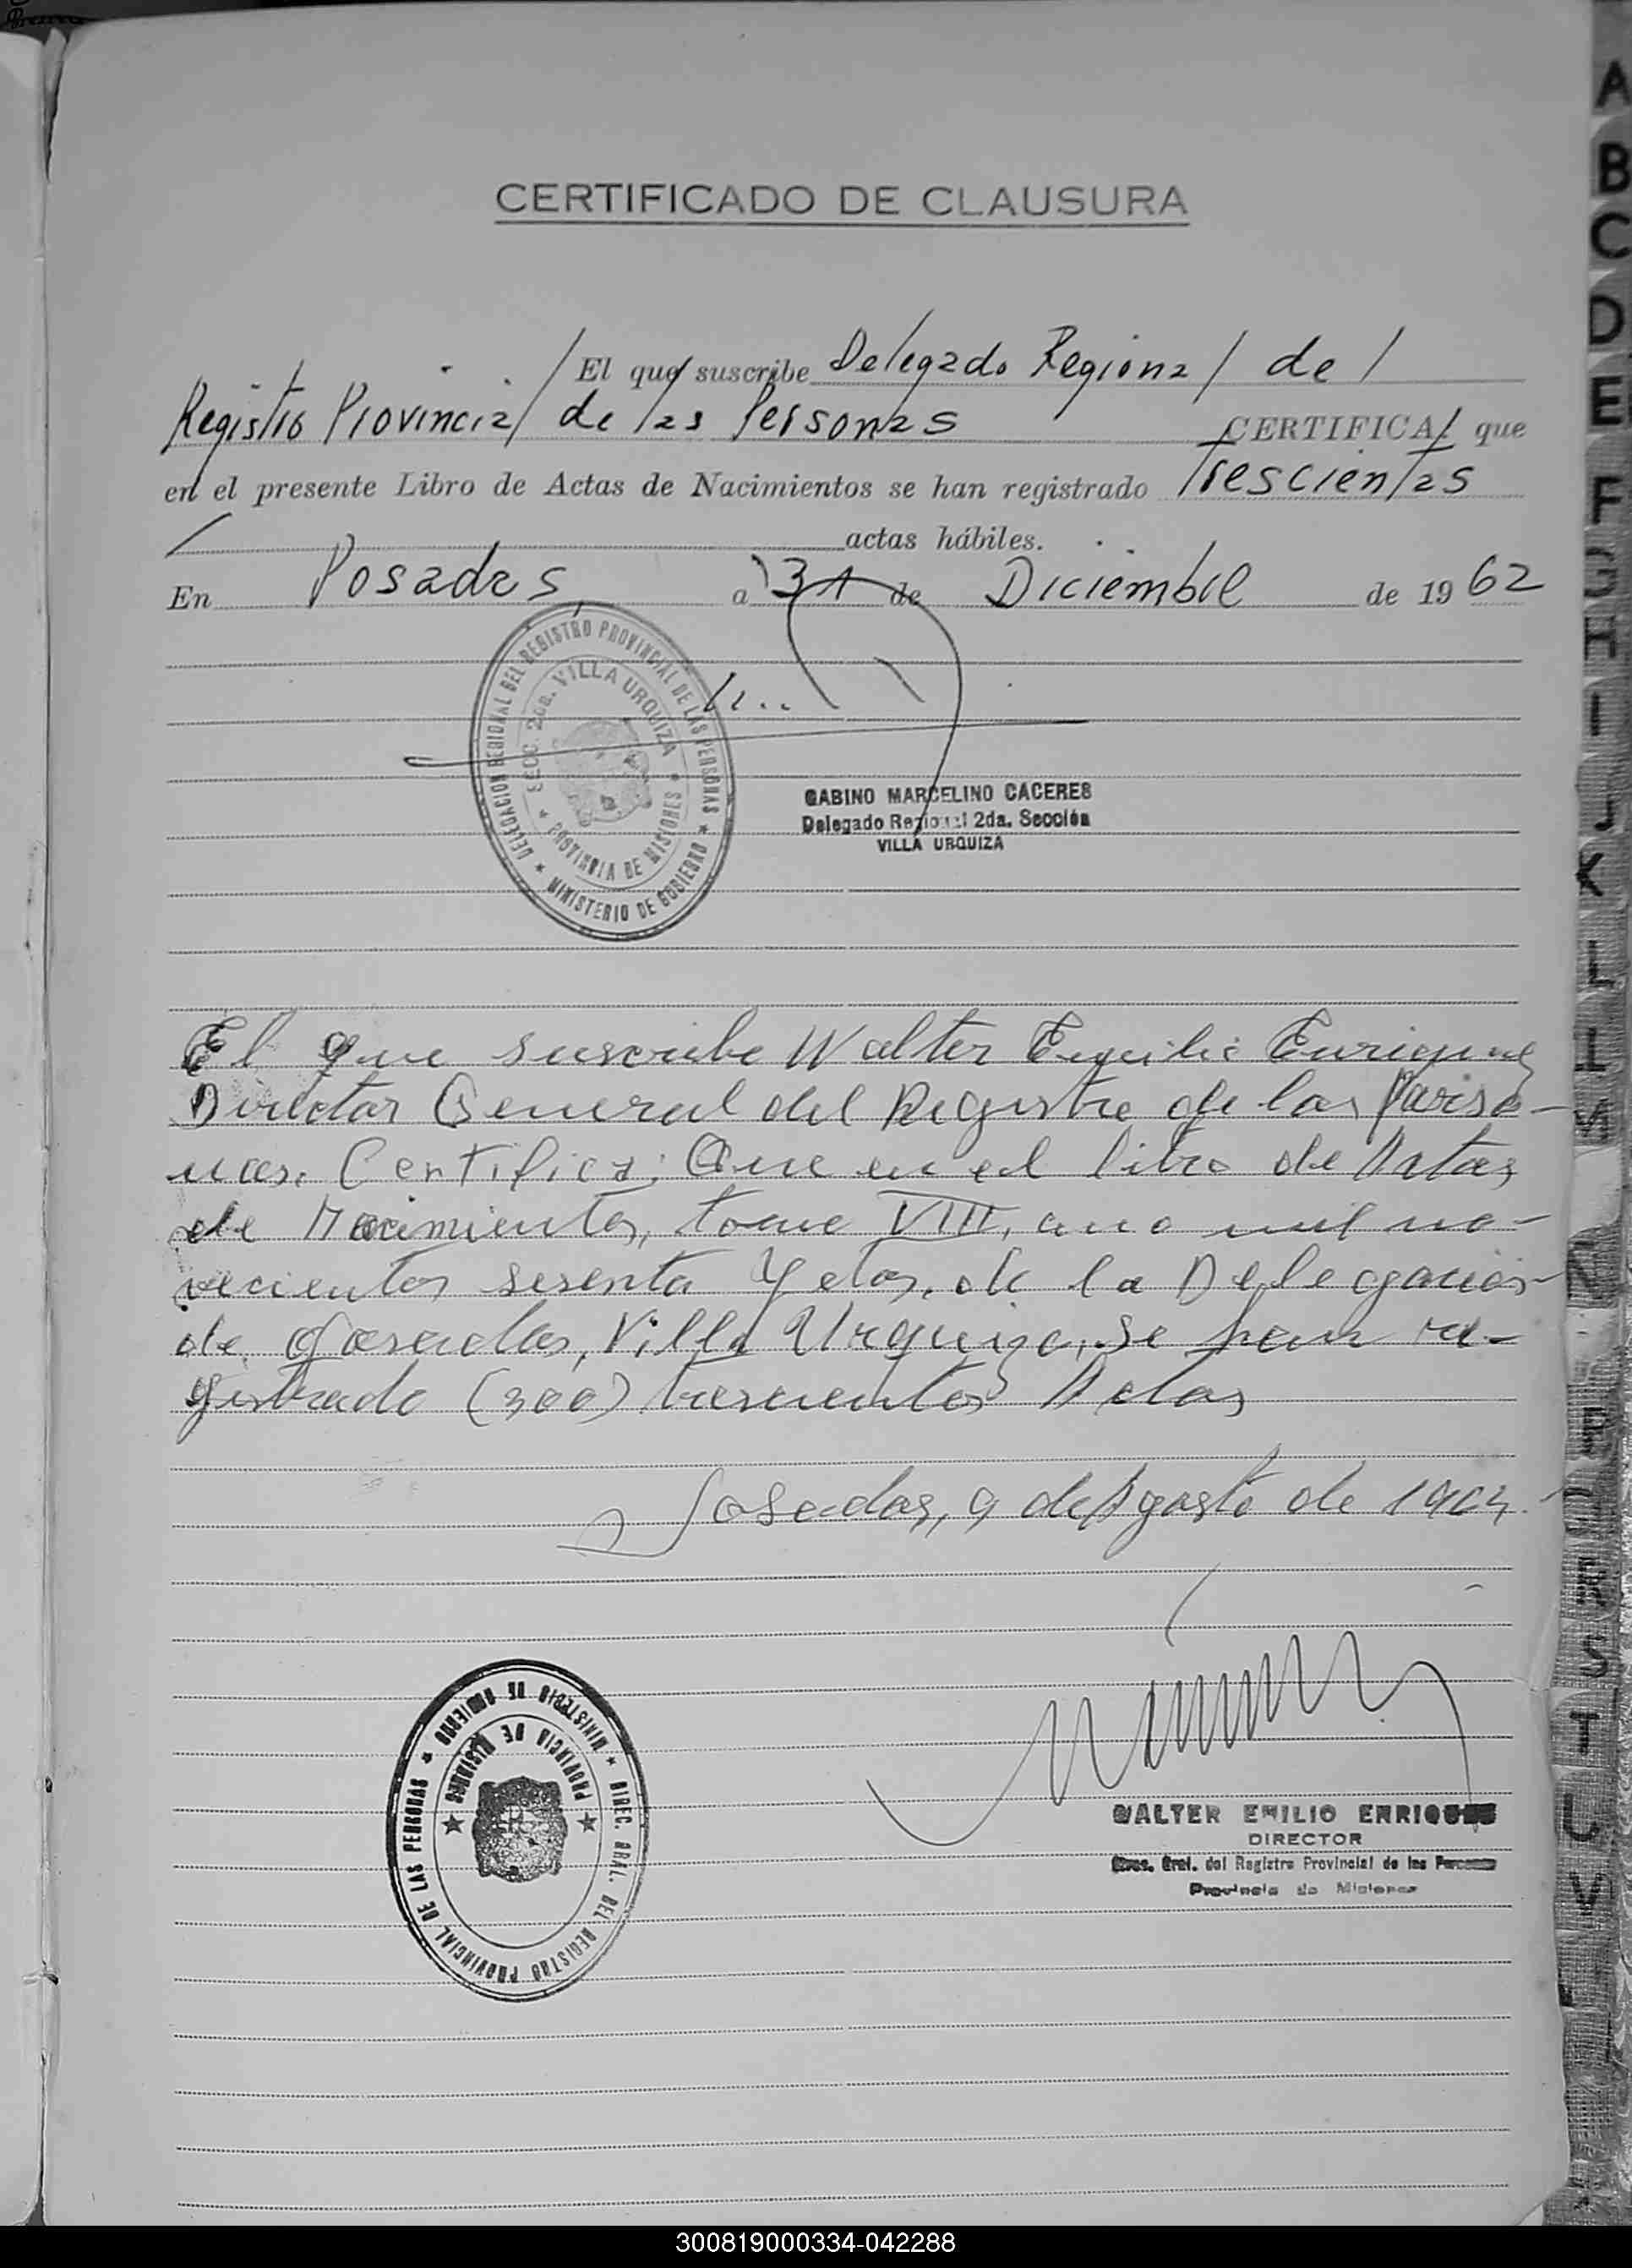 CERTIFICADO DE CLAUSURA
El que suscribe Delegado Regional del
Registro Provincial de las Personas CERTIFICA: que
en el presente Libro de Actas de Nacimientos se han registrado Trescientas
actas hábiles.
En Posadas, a 31 de Diciembre de 1962
DELEGACION REGIONAL DEL REGISTRO PROVINCIAL DE LAS PERSONAS ★ MINISTERIO DE GOBIERNO ★
SECC. 2da. VILLA URQUIZA ★ PROVINCIA DE MISIONES ★
GABINO MARCELINO CACERES
Delegado Regional 2da. Sección
VILLA URQUIZA
El que suscribe Walter Emilio Enriques
Director General del Registro de las Perso-
nas. Certifica: Que en el libro de Actas
de Nacimientos, tomo VIII, ano mil no-
vecientos sesenta y dos, de la Delegación
de Posadas, Villa Urquiza, se han re-
gistrado (300) trescientos Actas
Posadas, 9 de Agosto de
MINISTERIO DE GOBIERNO ★ DIREC. GRAL. DEL REGISTRO PROVINCIAL DE LAS PERSONAS ★
PROVINCIA DE MISIONES
WALTER EMILIO ENRIQUES
DIRECTOR
Direc. Gral. del Registro Provincial de las Personas
Provincia de Misiones
A
B
C
D
E
F
G
H
I
J
K
L
300819000334-042288